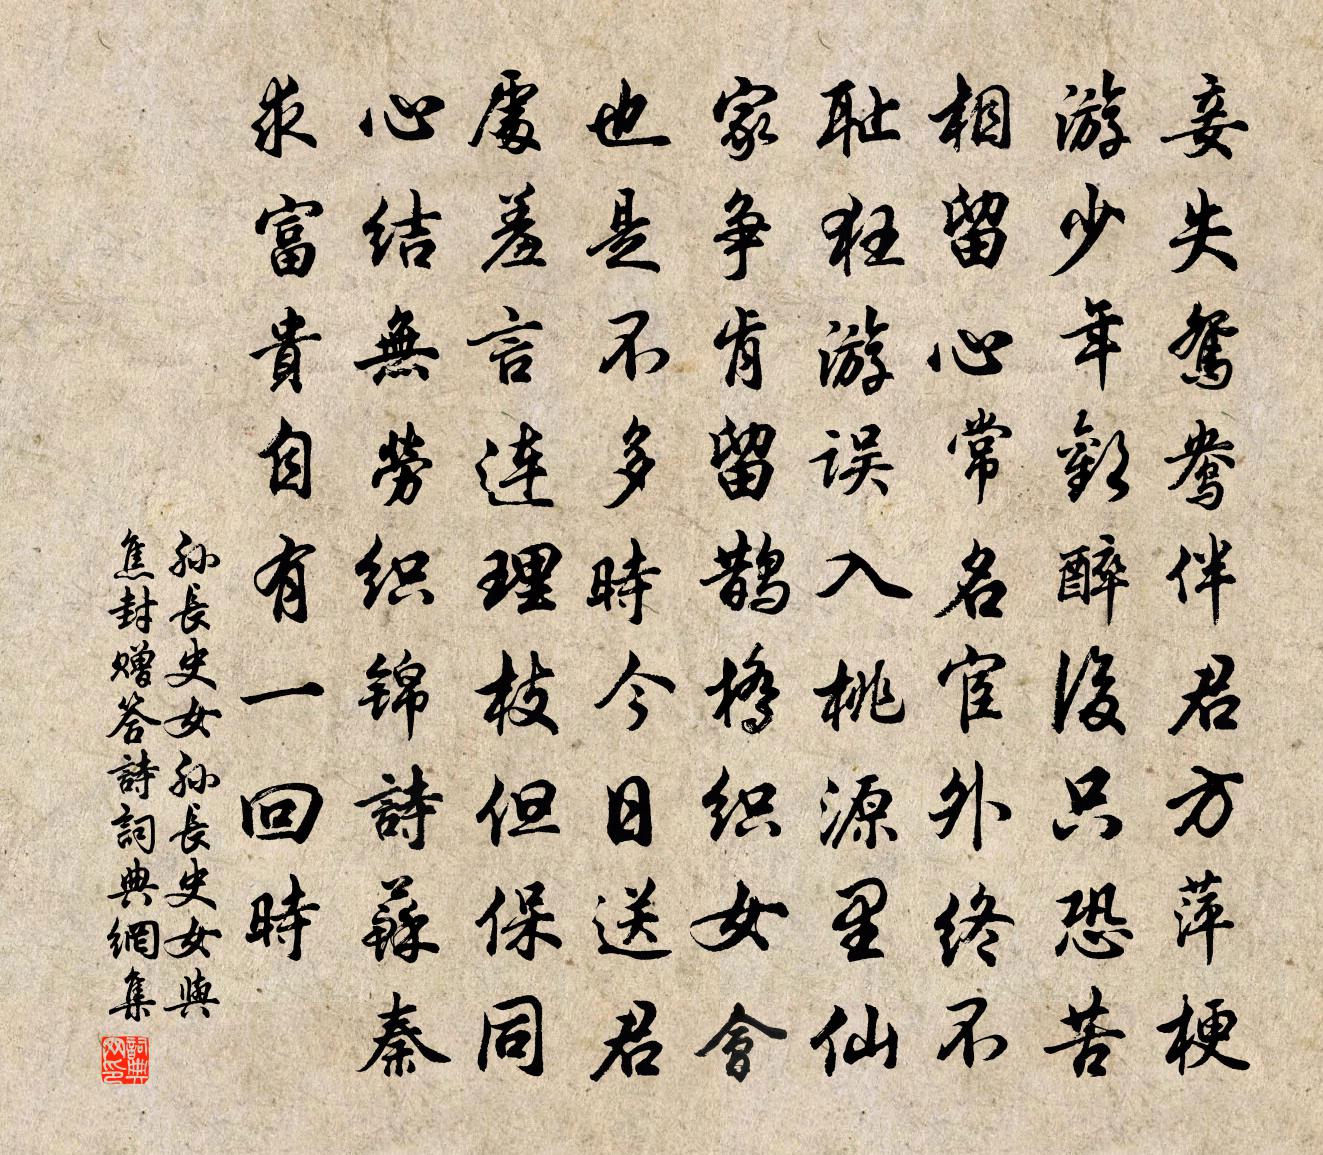 妾失鴛鴦伴君方萍梗
游少年歡醉後只恐苦
相留心常名宦外終不
耻狂游误入桃源里仙
家争肯留鵲橋织女會
也是不多時今日送君
處羞言連理枝但保同
心结無勞织锦詩蘇秦
求富貴自有一回時
孙長史女孙長史女與
焦封赠答詩詞典網集
詞典
网印